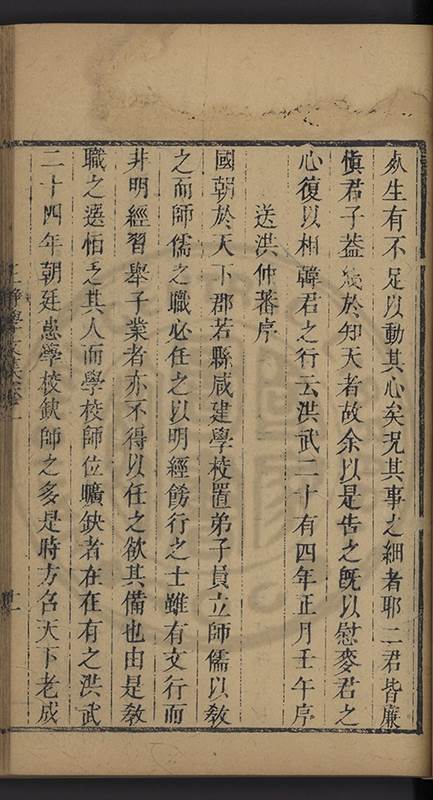 死生有不足以動其心矣况其事之細者耶二君皆廉
愼君子葢幾於知天者故余以是告之旣以慰麥君之
心復以相韓君之行云洪武二十有四年正月壬午序
送洪仲蕃序
國朝於天下郡若縣咸建學校置弟子員立師儒以敎
之而師儒之職必任之以明經飭行之士雖有文行而
非明經習舉子業者亦不得以任之欲其備也由是敎
職之選恒乏其人而學校師位曠缺者在在有之洪武
二十四年朝廷患學校缺師之多是時方召天下老成
王靜學文集卷二